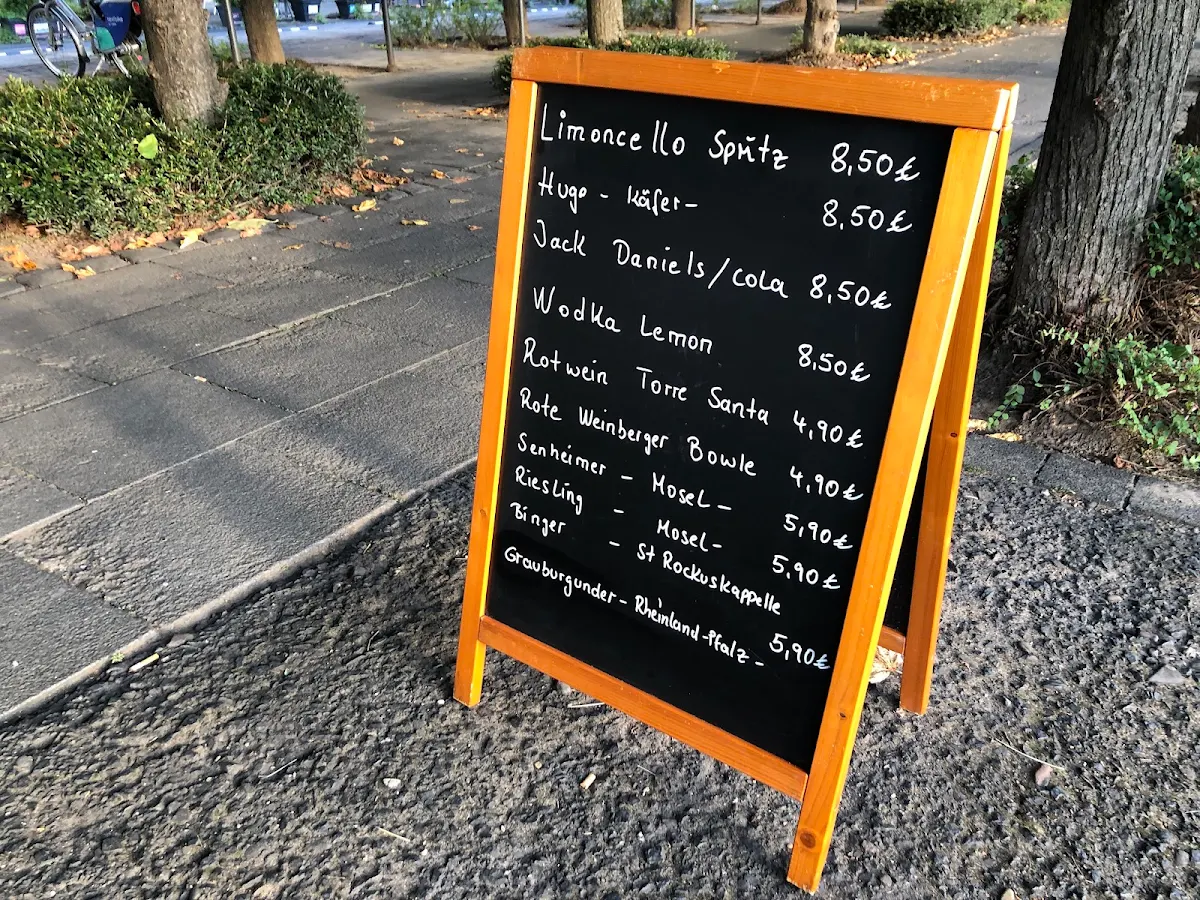 Limoncello Spritz 8,50€
Hugo - Käfer- 8,50€
Jack Daniels/cola 8,50€
Wodka Lemon 8,50€
Rotwein Torre Santa 4,90€
Rote Weinberger Bowle 4,90€
Senheimer - Mosel - 5,90€
Riesling - Mosel- 5,90€
Binger - St Rockuskappelle
Grauburgunder - Rheinland-Pfalz - 5,90€